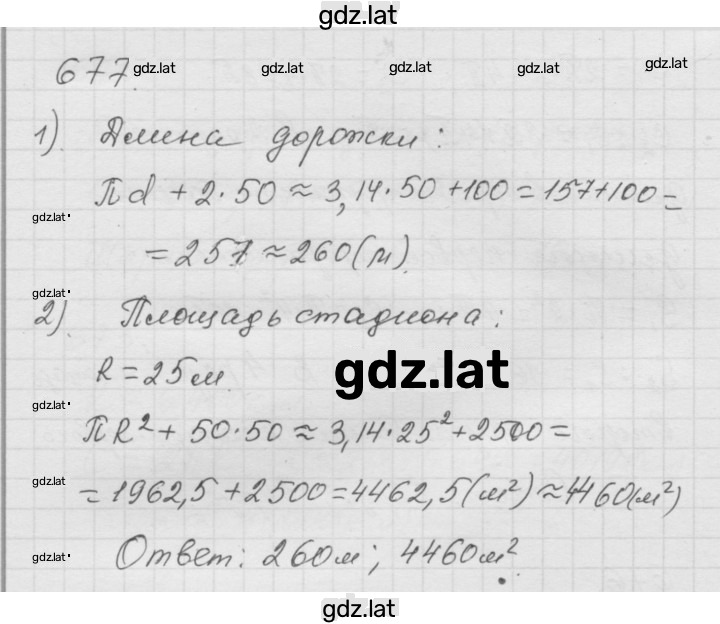 gdz.lat
677. gdz.lat gdz.lat gdz.lat gdz.lat gdz.lat
1). Длина дорожки:
πd + 2·50 ≈ 3,14·50 + 100 = 157 + 100 =
gdz.lat
= 257 ≈ 260 (м).
gdz.lat
2). Площадь стадиона:
R = 25 м.
gdz.lat
gdz.lat
πR² + 50·50 ≈ 3,14·25² + 2500 =
gdz.lat
= 1962,5 + 2500 = 4462,5 (м²) ≈ 4460 (м²)
gdz.lat
Ответ: 260 м; 4460 м².
gdz.lat